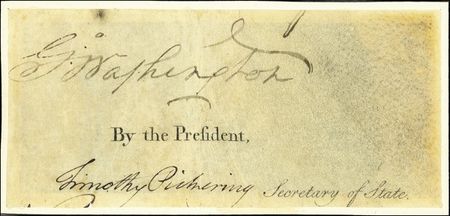 Go: Washington
By the Preſident,
Timothy Pickering Secretary of State.